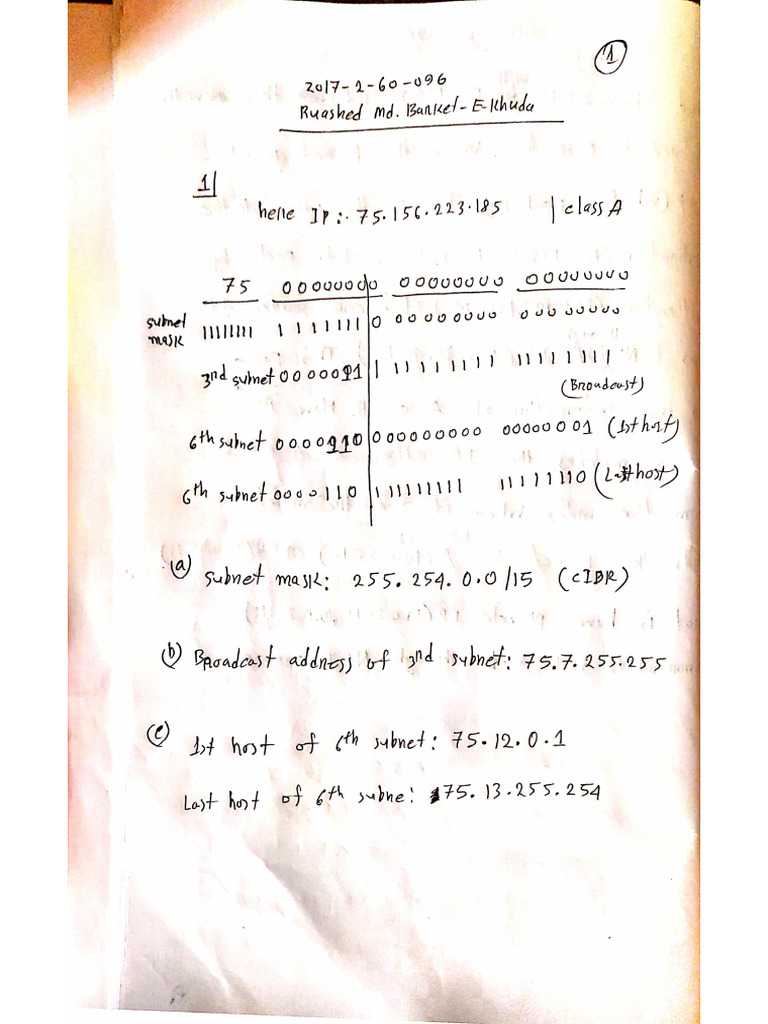 1
2017-2-60-096
Ruashed Md. Barket-E-Khuda
1|
here IP:- 75.156.223.185 | class A
75 00000000 00000000 00000000
subnet mask 11111111 1111111 0 00000000 00000000
3rd subnet 0000011 1 11111111 11111111
(Broadcast)
6th subnet 0000110 000000000 00000001 (1st host)
6th subnet 0000110 111111111 11111110 (Last host)
(a) subnet mask: 255.254.0.0/15 (CIDR)
(b) Broadcast address of 3rd subnet: 75.7.255.255
(c) 1st host of 6th subnet: 75.12.0.1
Last host of 6th subne: 75.13.255.254